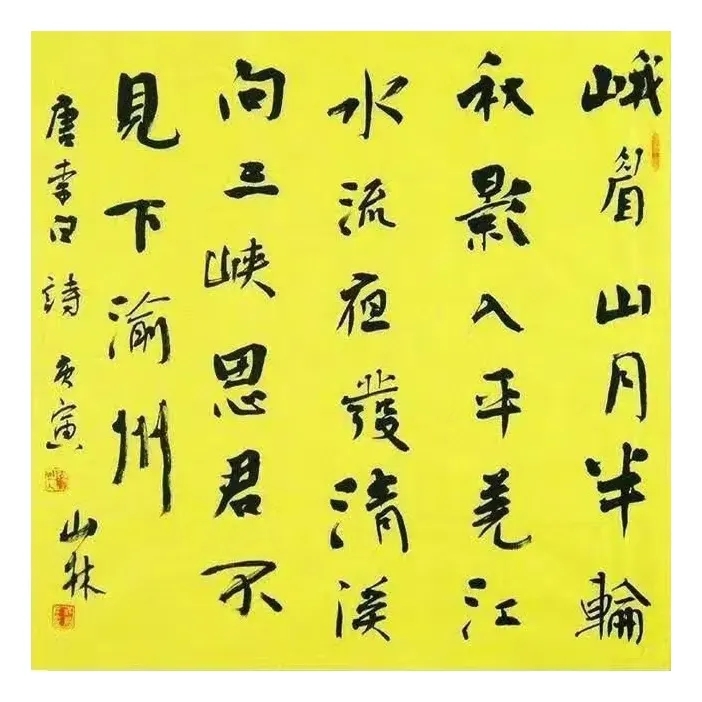 峨眉山月半輪
秋影入平羌江
水流夜發清溪
向三峽思君不
見下渝州
唐李白詩 庚寅
山林